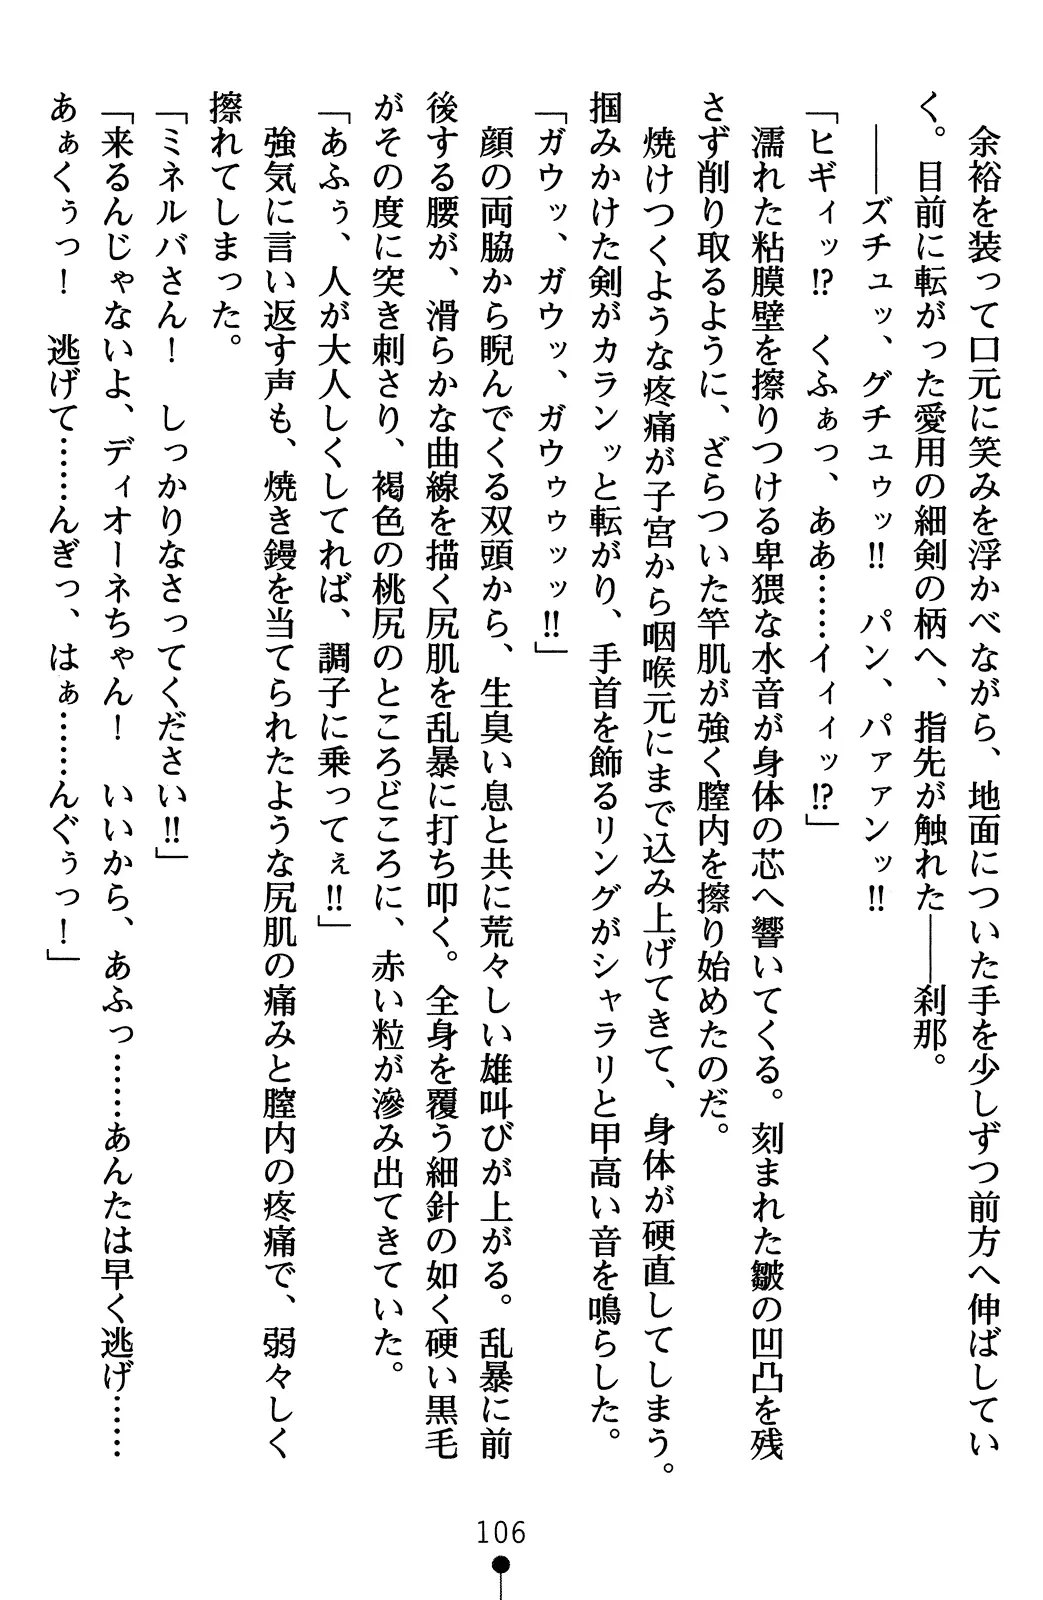 余裕を装って口元に笑みを浮かべながら、地面についた手を少しずつ前方へ伸ばしてい
く。目前に転がった愛用の細剣の柄へ、指先が触れた――刹那。
――ズチュッ、グチュゥッ!! パン、パァンッ!!
「ヒギィッ!? くふぁっ、ああ……イィィッ!?」
濡れた粘膜壁を擦りつける卑猥な水音が身体の芯へ響いてくる。刻まれた皺の凹凸を残
さず削り取るように、ざらついた竿肌が強く膣内を擦り始めたのだ。
焼けつくような疼痛が子宮から咽喉元にまで込み上げてきて、身体が硬直してしまう。
掴みかけた剣がカランッと転がり、手首を飾るリングがシャラリと甲高い音を鳴らした。
「ガウッ、ガウッ、ガウゥゥッッ!!」
顔の両脇から睨んでくる双頭から、生臭い息と共に荒々しい雄叫びが上がる。乱暴に前
後する腰が、滑らかな曲線を描く尻肌を乱暴に打ち叩く。全身を覆う細針の如く硬い黒毛
がその度に突き刺さり、褐色の桃尻のところどころに、赤い粒が滲み出てきていた。
「あふぅ、人が大人しくしてれば、調子に乗ってぇ!!」
強気に言い返す声も、焼き鏝を当てられたような尻肌の痛みと膣内の疼痛で、弱々しく
擦れてしまった。
「ミネルバさん! しっかりなさってください!!」
「来るんじゃないよ、ディオーネちゃん! いいから、あふっ……あんたは早く逃げ……
あぁくぅっ! 逃げて……んぎっ、はぁ……んぐぅっ!」
106